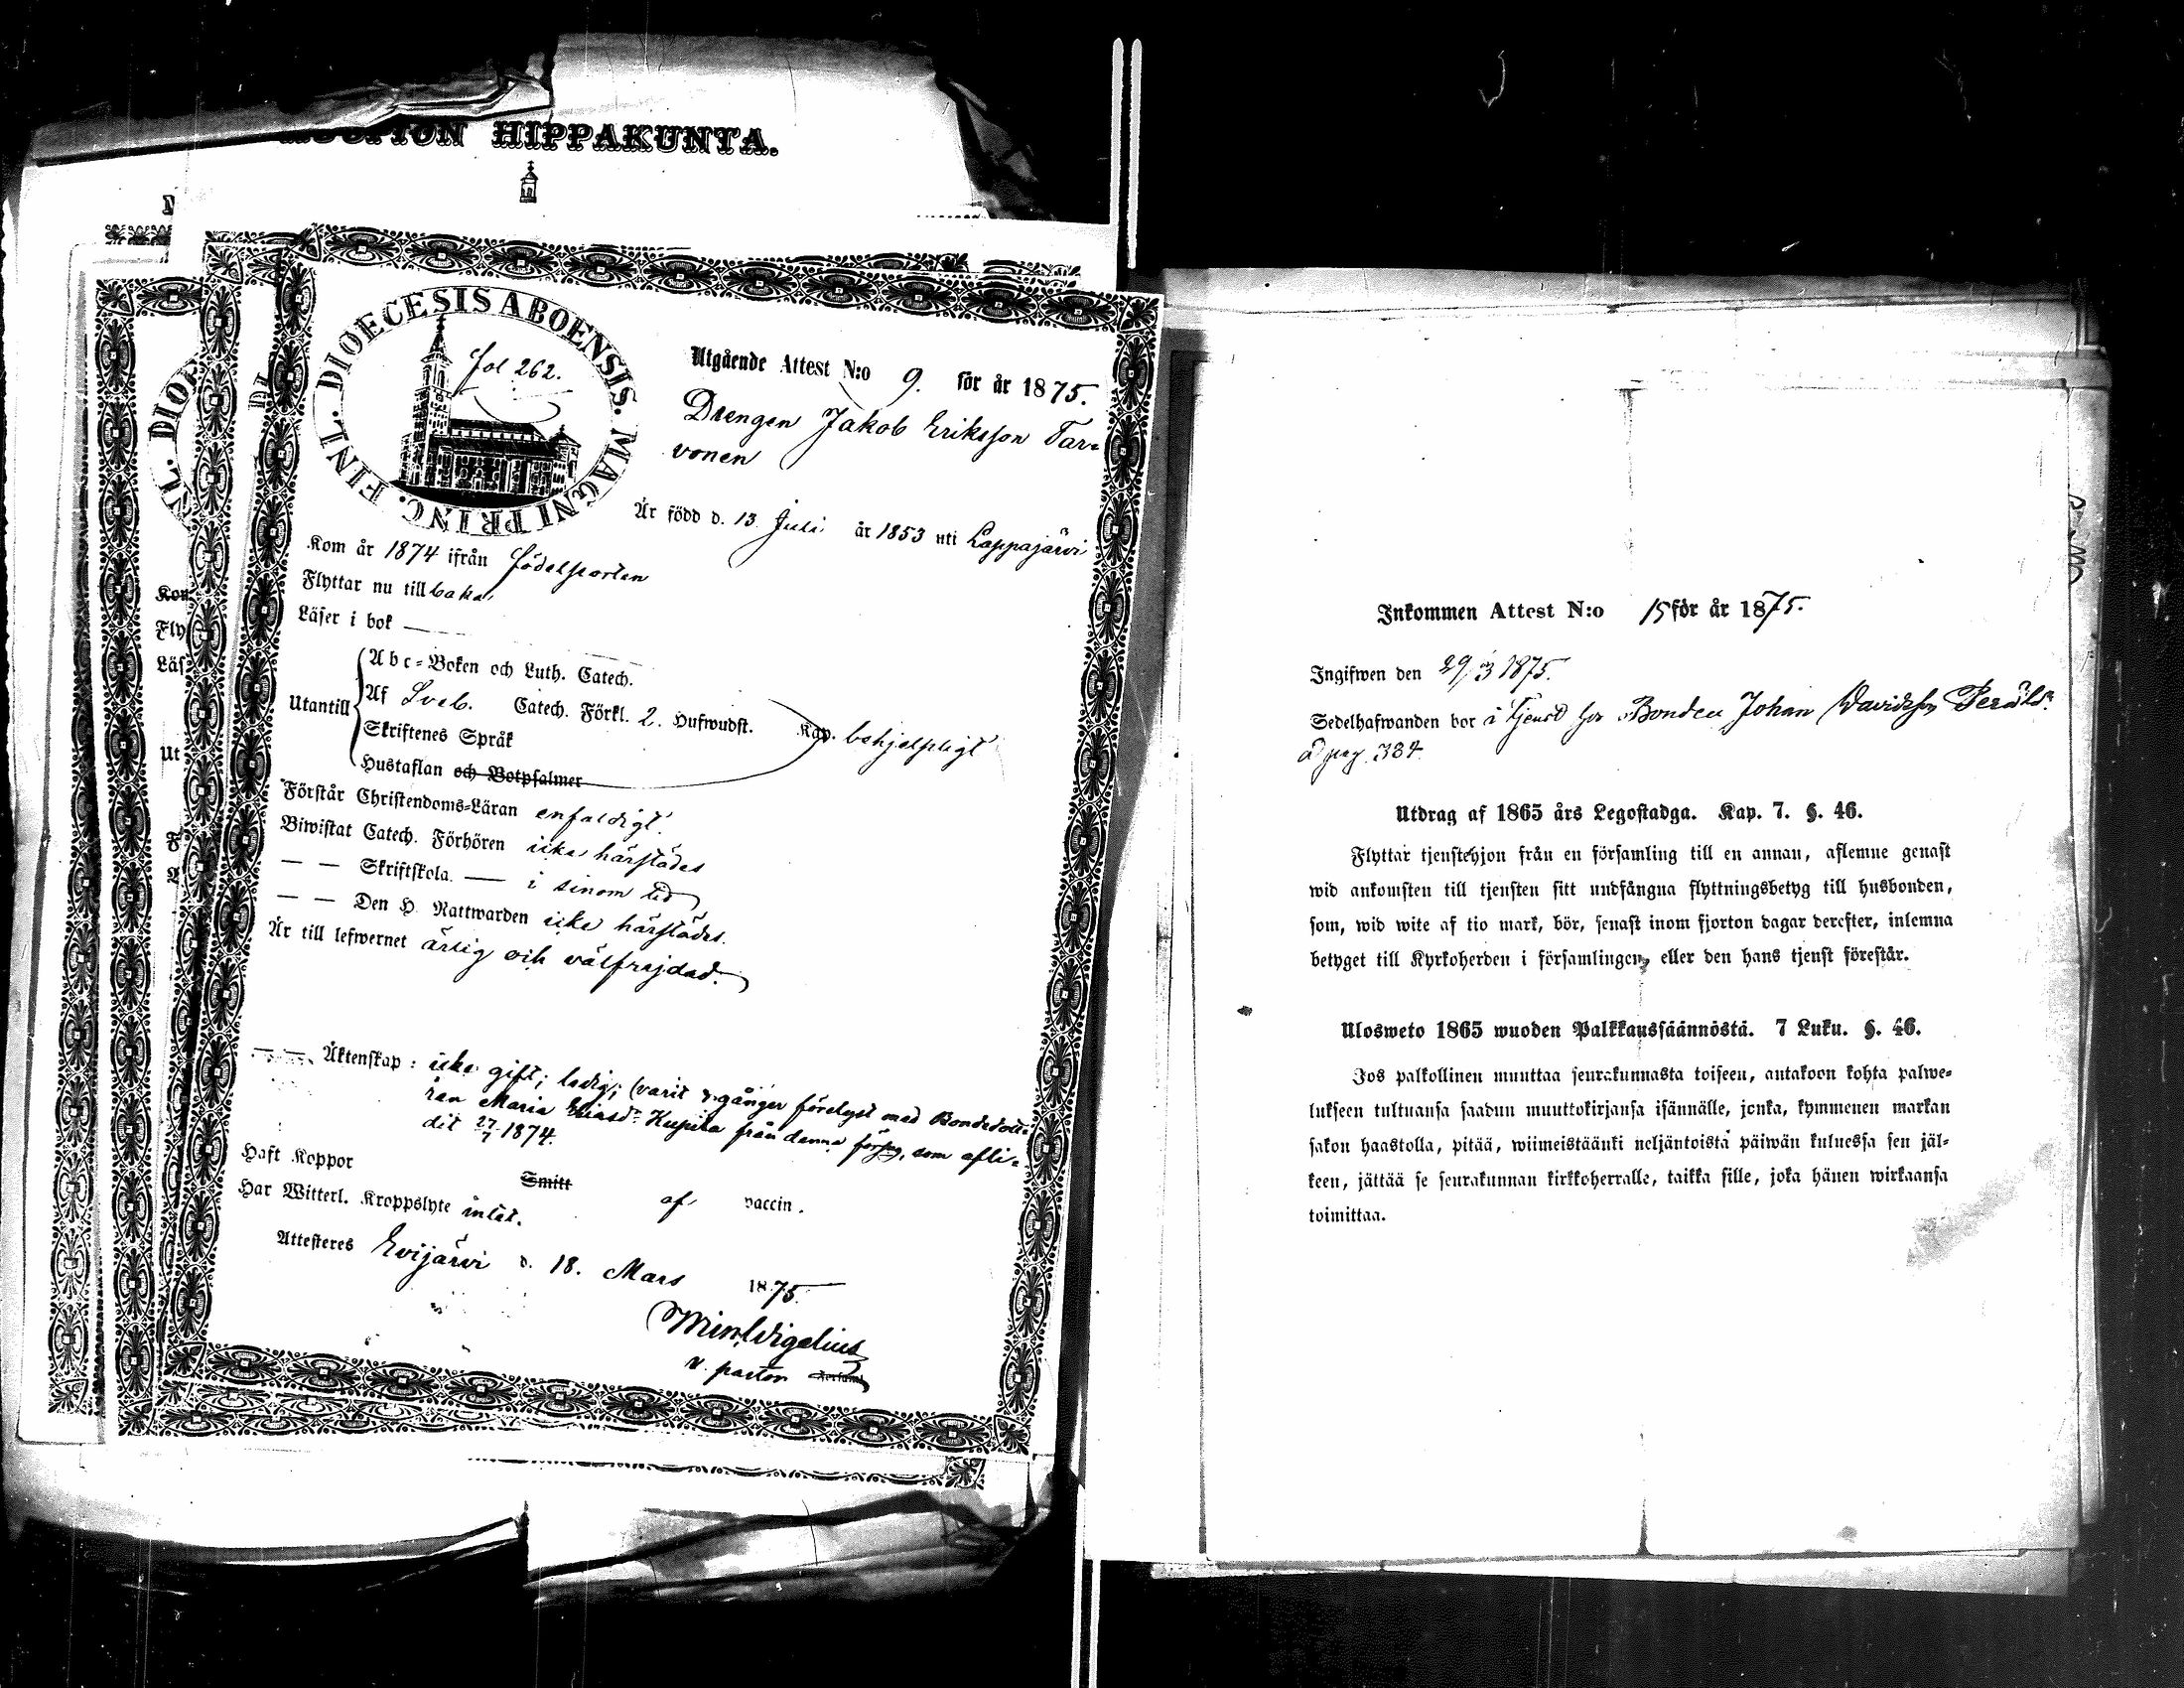 HIPPAKUNTA.
FINL. DIOECESIS ABOENSIS. MAGNI PRINC.
fol 262.
Utgående Attest N:o 9. för år 1875.
Drengen Jakob Eriksson Tar-
vonen
Är född d. 13 Juli år 1853 uti Lappajärvi
Kom år 1874 ifrån födelseorten
Flyttar nu till baka,
Läser i bok —
Utantill
Abc-Boken och Luth. Catech.
Af Sveb. Catech. Förkl. 2. Hufwudst. Kap. behjelpligt
Skriftenes Språk
Hustaflan och Botpsalmer
Förstår Christendoms-Läran enfaldigt.
Biwistat Catech. Förhören icke härstädes
— — Skriftskola. — i sinom tid
— — Den H. Nattwarden icke härstädes.
Är till lefwernet ärlig och välfrejdad.
— — Äktenskap: icke gift; ledig; (varit gånger förelyst med Bondedott
ran Maria Eliasdr Kupila från denna förs., som afli-
dit 27/7 1874.
Haft Koppor Smitt af vaccin.
Har Witterl. Kroppslyte intet.
Attesteres Evijärvi d. 18. Mars 1875.
Wigelius
v. pastor
NL. DIOE
DI
Kom
Fly
Läs
Ut
F
Inkommen Attest N:o 15 för år 1875.
Ingifwen den 29/3 1875.
Sedelhafwanden bor i tjenst hos Bonden Johan Davidsson
å pag. 384.
Utdrag af 1865 års Legostadga. Kap. 7. §. 46.
Flyttar tjenstehjon från en församling till en annan, aflemne genast
wid ankomsten till tjensten sitt undfångna flyttningsbetyg till husbonden,
som, wid wite af tio mark, bör, senast inom fjorton dagar derefter, inlemna
betyget till Kyrkoherden i församlingen, eller den hans tjenst förestår.
Ulosweto 1865 wuoden Palkkaussäännöstä. 7 Luku. §. 46.
Jos palkollinen muuttaa seurakunnasta toiseen, antakoon kohta palwe-
lukseen tultuansa saadun muuttokirjansa isännälle, jonka, kymmenen markan
sakon haastolla, pitää, wiimeistäänki neljäntoista päiwän kuluessa sen jäl-
keen, jättää se seurakunnan kirkkoherralle, taikka sille, joka hänen wirkaansa
toimittaa.